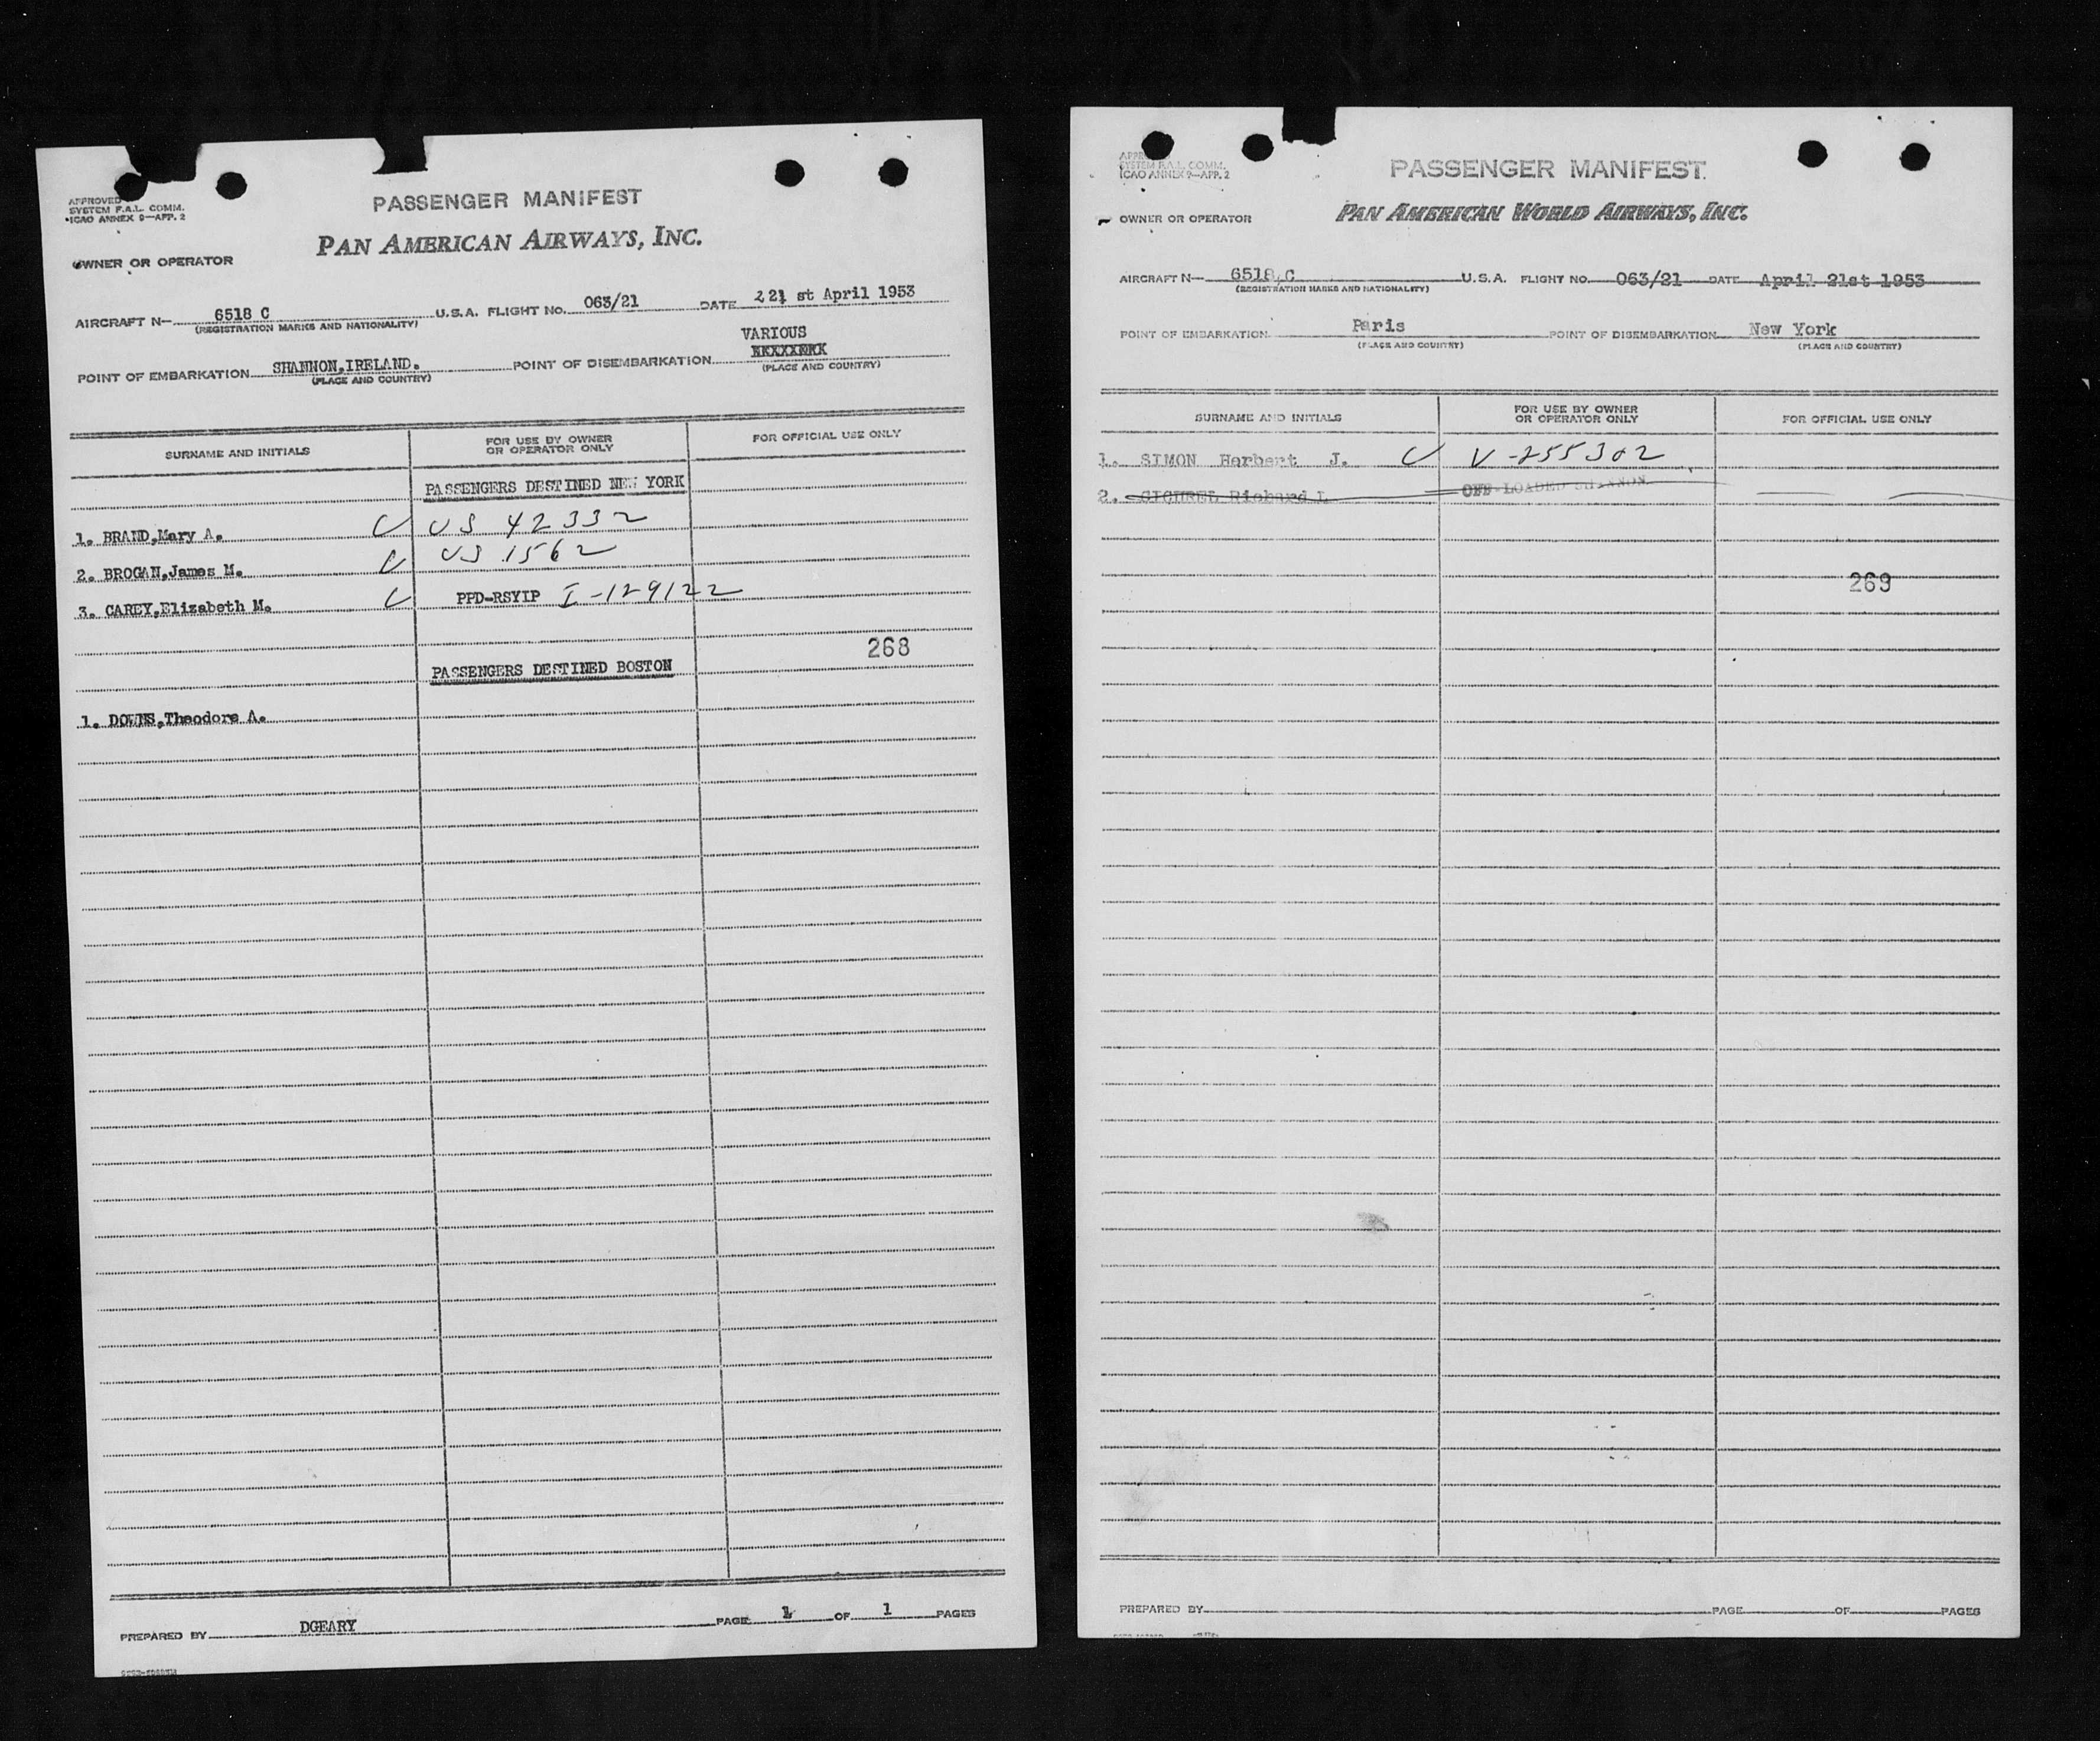 APPROVED
SYSTEM F.A.L. COMM.
ICAO ANNEX 9—APP. 2
PASSENGER MANIFEST
PAN AMERICAN AIRWAYS, INC.
OWNER OR OPERATOR
AIRCRAFT N— 6518 C U.S.A. FLIGHT NO. 063/21 DATE 221 st April 1953
(REGISTRATION MARKS AND NATIONALITY)
VARIOUS
POINT OF EMBARKATION SHANNON,IRELAND. POINT OF DISEMBARKATION
(PLACE AND COUNTRY) (PLACE AND COUNTRY)
SURNAME AND INITIALS FOR USE BY OWNER OR OPERATOR ONLY FOR OFFICIAL USE ONLY
PASSENGERS DESTINED NEW YORK
1. BRAND,Mary A. V US 42332
2. BROGAN,James M. V US 1562
3. CAREY,Elizabeth M. V PPD-RSYIP I-129122
268
PASSENGERS DESTINED BOSTON
1. DOWNS,Theodore A.
PREPARED BY DGEARY PAGE 1 OF 1 PAGES
SYSTEM F.A.L. COMM.
ICAO ANNEX 9—APP. 2
PASSENGER MANIFEST
OWNER OR OPERATOR
PAN AMERICAN WORLD AIRWAYS, INC.
AIRCRAFT N— 6518 C U.S.A. FLIGHT NO. 063/21 DATE April 21st 1953
(REGISTRATION MARKS AND NATIONALITY)
POINT OF EMBARKATION Paris POINT OF DISEMBARKATION New York
(PLACE AND COUNTRY) (PLACE AND COUNTRY)
SURNAME AND INITIALS FOR USE BY OWNER OR OPERATOR ONLY FOR OFFICIAL USE ONLY
1. SIMON Herbert J. V V-255302
2. Richard L OFF-LOADED SHANNON
269
PREPARED BY PAGE OF PAGES